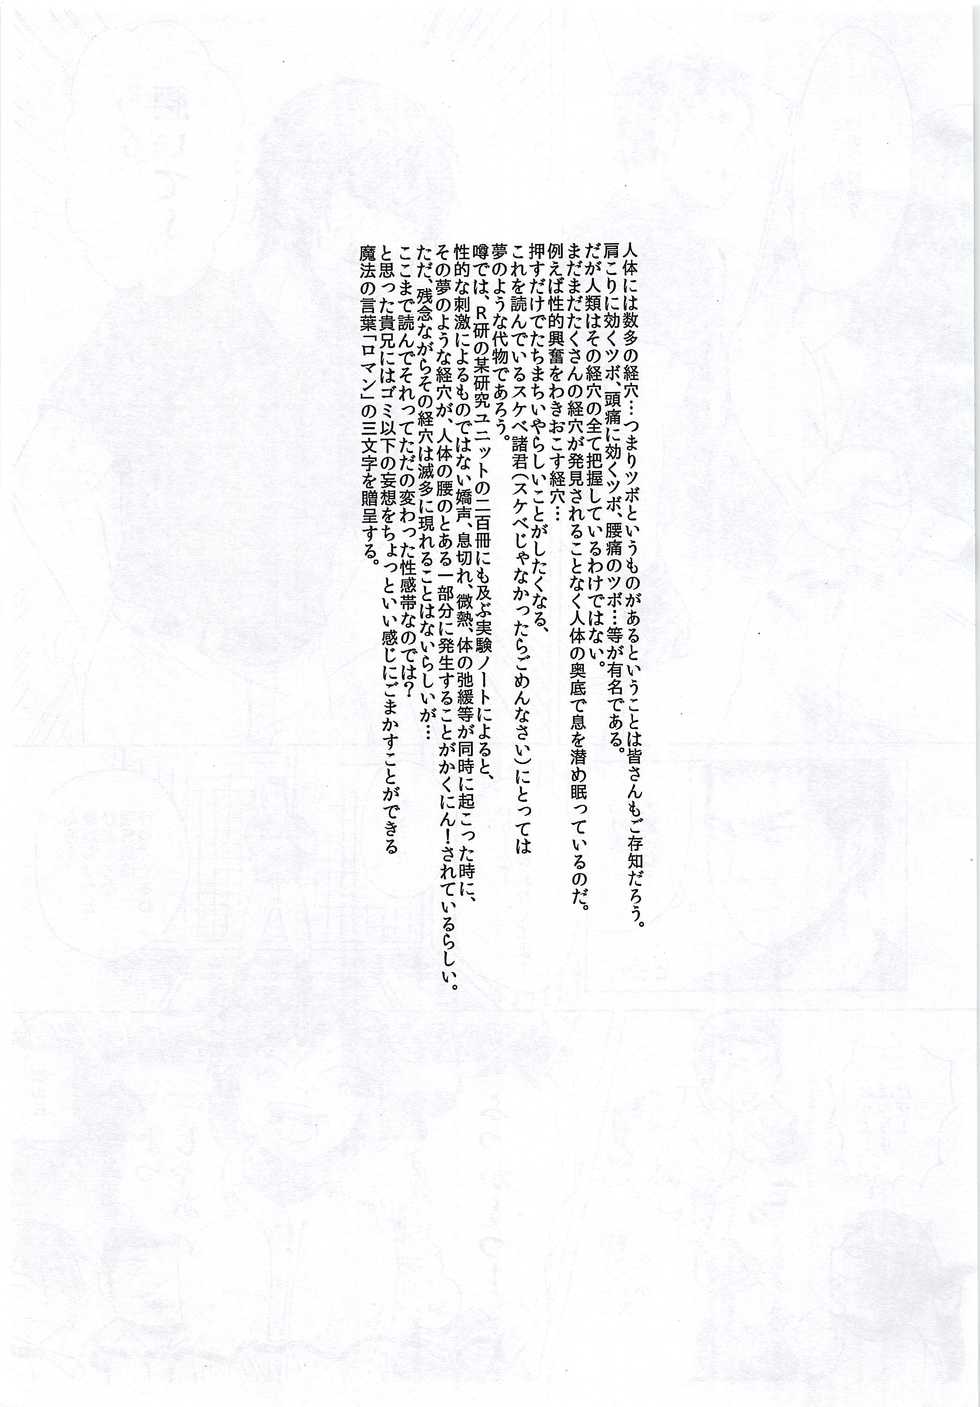 人体には数多の経穴…つまりツボというものがあるということは皆さんもご存知だろう。
肩こりに効くツボ、頭痛に効くツボ、腰痛のツボ…等が有名である。
だが人類はその経穴の全て把握しているわけではない。
まだまだたくさんの経穴が発見されることなく人体の奥底で息を潜め眠っているのだ。
例えば性的興奮をわきおこす経穴…
押すだけでたちまちいやらしいことがしたくなる、
これを読んでいるスケベ諸君(スケベじゃなかったらごめんなさい)にとっては
夢のような代物であろう。
噂では、R研の某研究ユニットの二百冊にも及ぶ実験ノートによると、
性的な刺激によるものではない嬌声、息切れ、微熱、体の弛緩等が同時に起こった時に、
その夢のような経穴が、人体の腰のとある一部分に発生することがかくにん!されているらしい。
ただ、残念ながらその経穴は滅多に現れることはないらしいが…
ここまで読んでそれってただの変わった性感帯なのでは?
と思った貴兄にはゴミ以下の妄想をちょっといい感じにごまかすことができる
魔法の言葉「ロマン」の三文字を贈呈する。